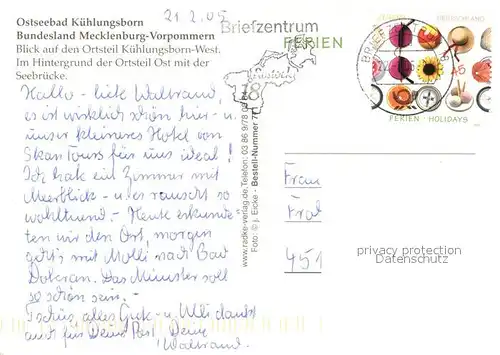 21 2. 05
Ostseebad Kühlungsborn
Bundesland Mecklenburg-Vorpommern
Blick auf den Ortsteil Kühlungsborn-West.
Im Hintergrund der Ortsteil Ost mit der
Seebrücke.
Hallo - liebe Waltraud,
es ist wirklich schön hier - u.
unser kleineres Hotel von
Skan Tours für uns ideal!
Ich hab ein Zimmer mit
Meerblick - u. es rauscht so
wohltuend. - Heute erkunde-
ten wir den Ort, morgen
geht's mit Molli nach Bad
Doberan. Das Münster soll
so schön sein. -
Tschüs, alles Gute - u. Ulli dankt
auch für Deine Post, Deine
Waltraud.
www.radke-verlag.de, Telefon: 03 86 9/78 0
Foto: © J. Eicke • Bestell-Nummer
Briefzentrum
18
FERIEN
DEUTSCHLAND
45
FERIEN · HOLIDAYS
Frau
451
privacy protection
Datenschutz